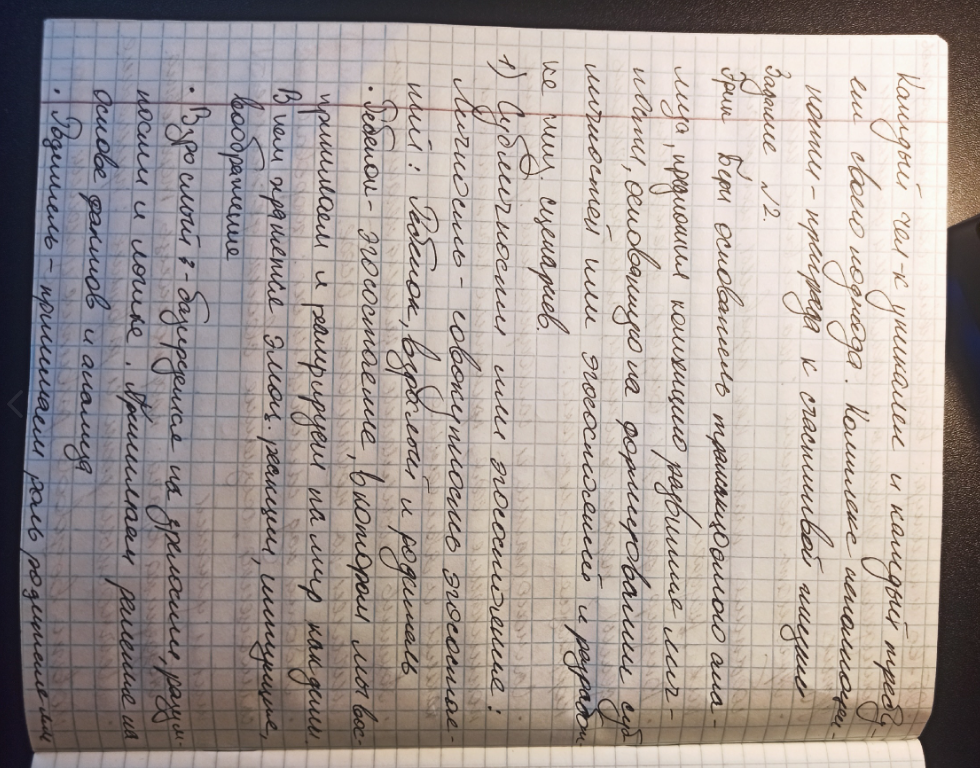 Каждый чел-к уникален и каждый требу-
ет своего подхода. Комплекс неполноцен-
ности - преграда к счастливой жизни
Задание №2.
Эрик Берн основатель транзакционного ана-
лиза, предложил концепцию развития лич-
ности, основанную на формировании суб
личностей или эгосостояний и разработ
ке жизн. сценариев.
1) Субличности или эгосостояние:
Личность - совокупность эгосостоя-
ний: Ребёнок, взрослый и родитель
• Ребёнок - эгосостояние, в котором мы вос-
принимаем и реагируем на мир как дети.
В нем хранятся эмоц. реакции, интуиция,
воображение
• Взрослый - базируется на зрелости, рацио-
ности и логике. Принимаем решение на
основе фактов и анализа
• Родитель - принимаем роль родителя или